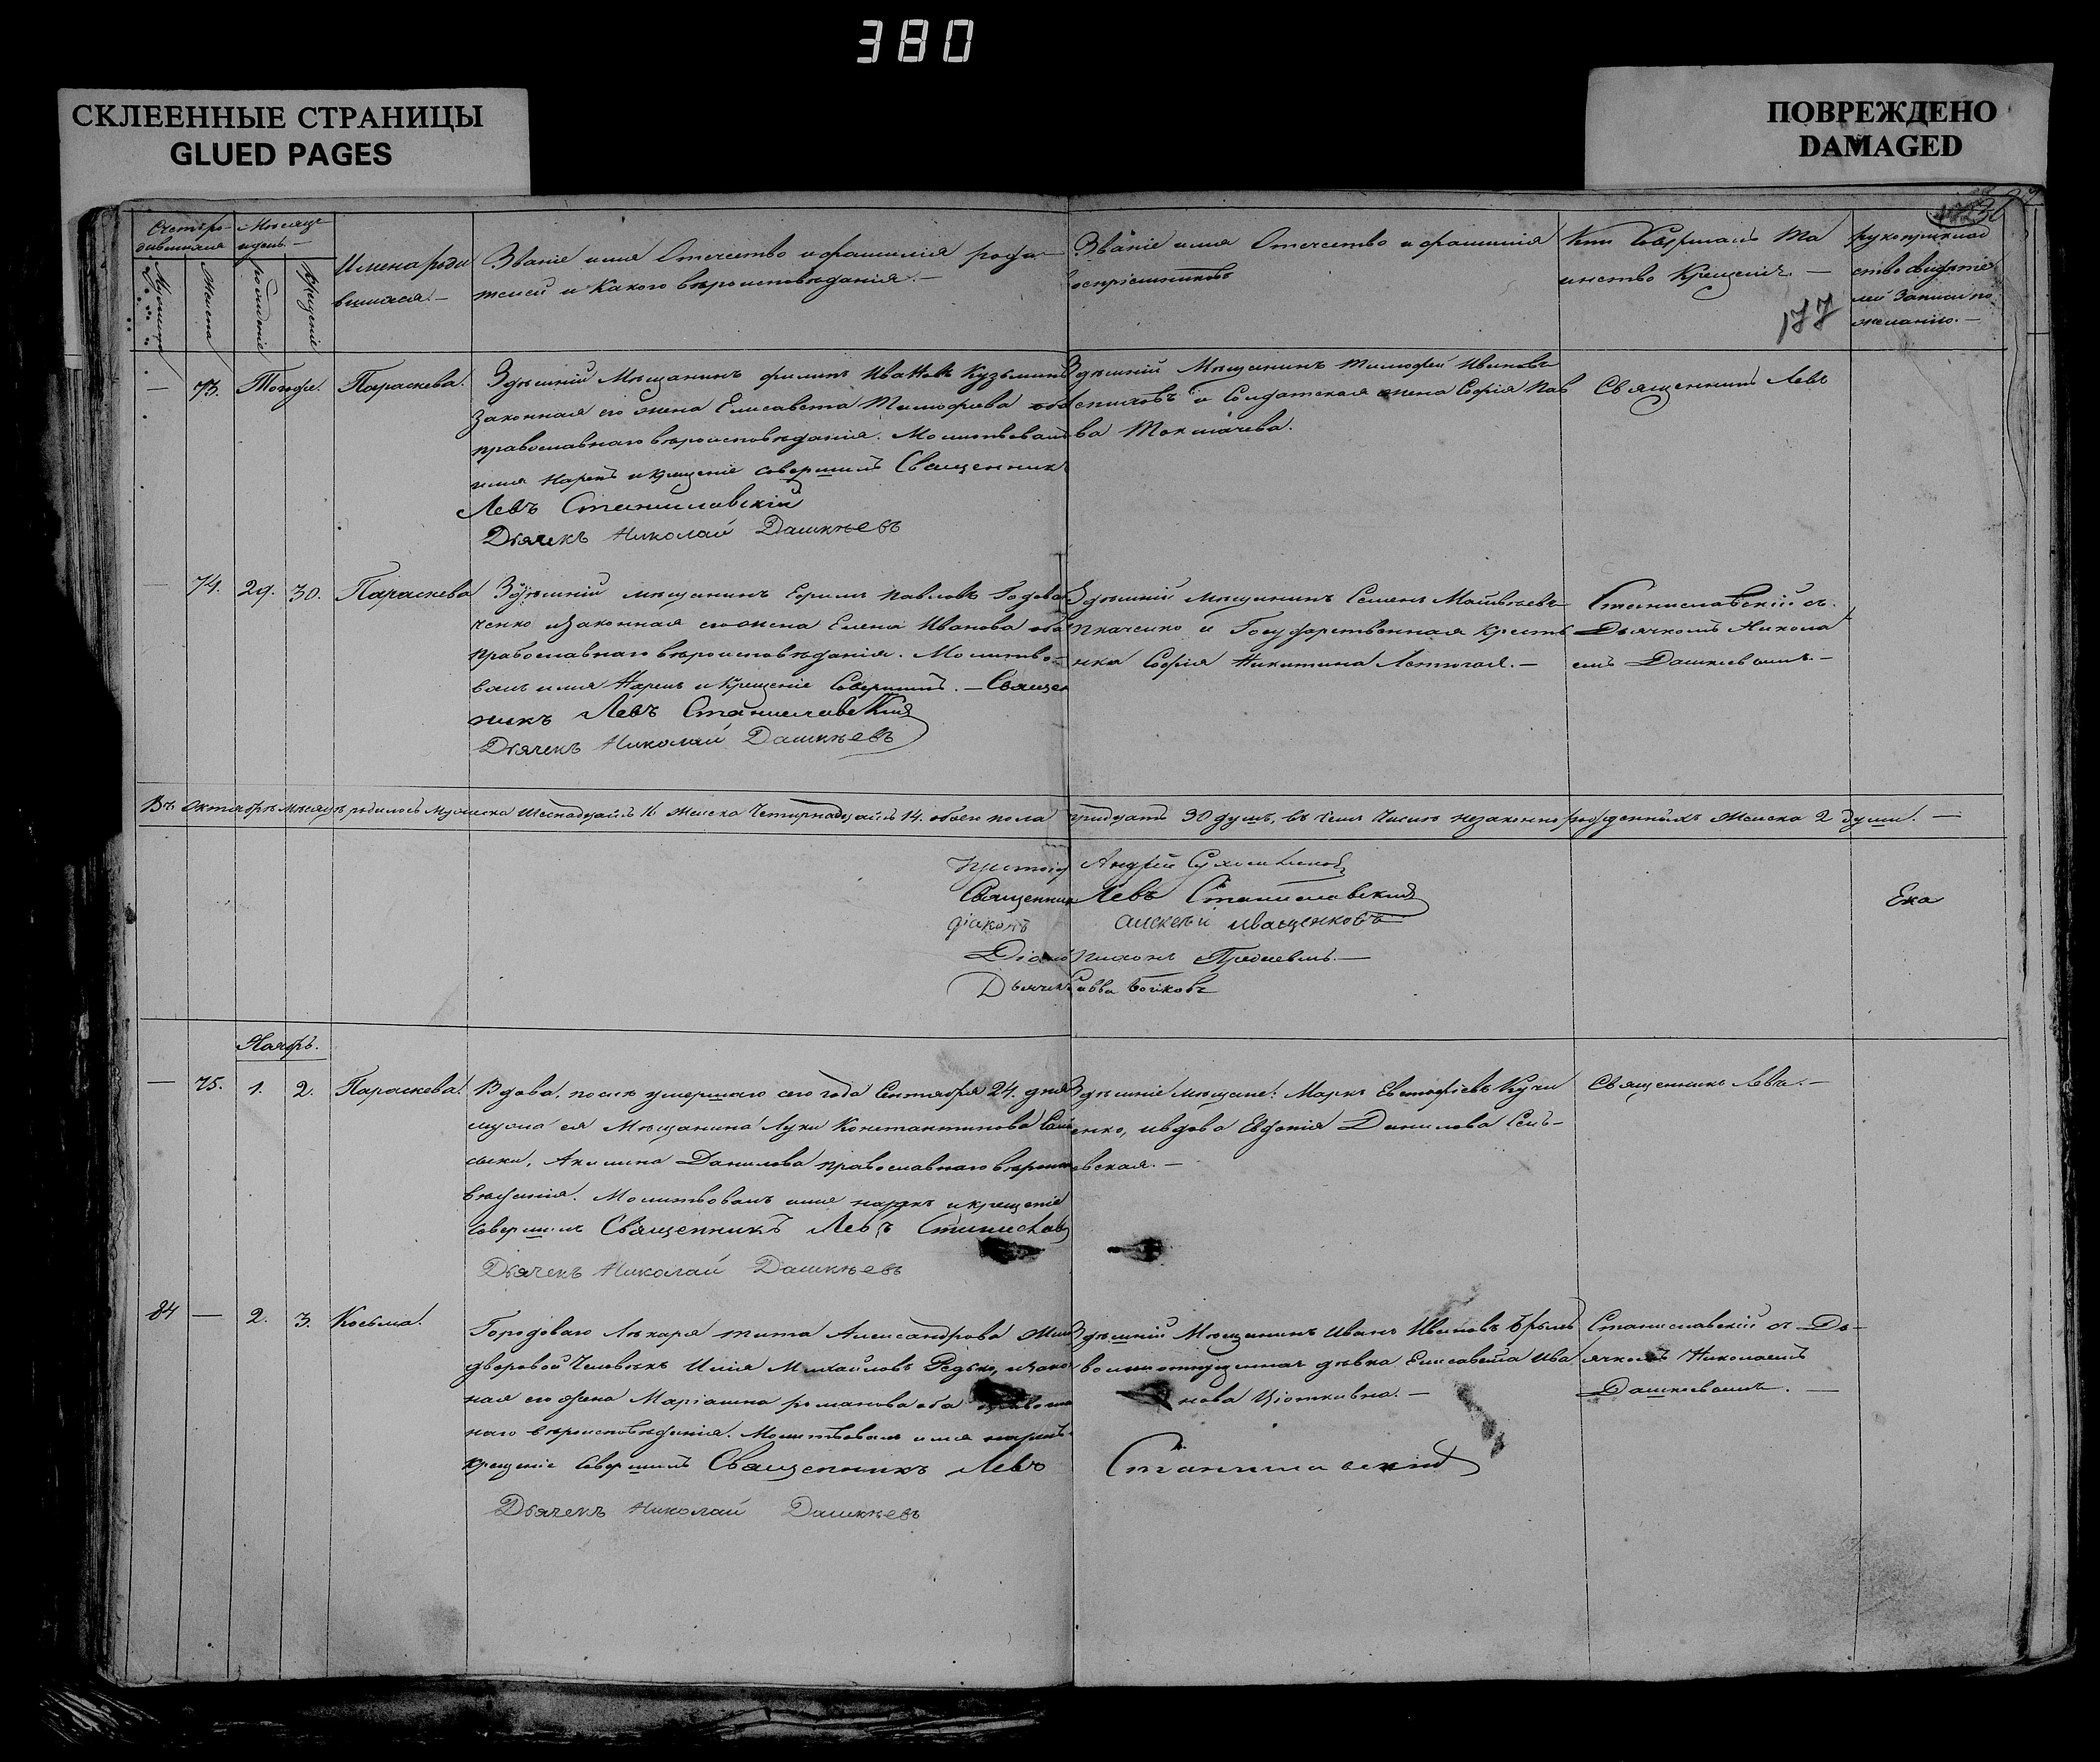 380
СКЛЕЕННЫЕ СТРАНИЦЫ
GLUED PAGES
ПОВРЕЖДЕНО
DAMAGED
177
Счетъ ро-
дившихся
Мѣсяцъ
и день.
Мужеска
Женска
рожденіе
крещеніе
Имена роди
вшихся.
Званіе имя Отечество и фамилія роди-
телей и Какого вѣроисповѣданія.
Званіе имя Отечество и фамилія
воспріемниковъ
Кто Совершалъ Та
инство Крещенія. —
рукоприклад
ство свидѣте
лей записи по
желанію. —
— 73. Тогоже. Параскева.
Здѣшній Мѣщанинъ Филипъ Ивановъ Кузьминъ
Законная его жена Елисавета Тимофеева оба
православнаго вѣроисповѣданія. Молитвовалъ
имя Нарекъ и крещеніе совершилъ Священникъ
Левъ Станиславскій
Дьячекъ Николай Дашкѣевъ
Здѣшній Мѣщанинъ Тимофей Ивановъ
и Солдатская жена Софія Пав
ва Токмачева.
Священникъ Левъ
— 74. 29. 30. Параскева
Здѣшній мѣщанинъ Ефримъ Павловъ Годова
ченко и Законная его жена Елена Иванова оба
Православнаго вѣроисповѣданія. Молитво-
валъ имя Нарекъ и Крещеніе Совершилъ. — Священ
никъ Левъ Станиславскій
Дьячекъ Николай Дашкѣевъ
Здѣшній мѣщанинъ Семенъ Матвѣевъ
Ткаченко и Государственная Кресть
нка Софія Никитина Лотюгая. —
Станиславскій съ
Дьячкомъ Никола
емъ Дашкевымъ. —
Въ Октябрѣ мѣсяцѣ родилось Мужеска Шеснадцать 16 Женска Четирнадцать 14. обоего пола тридцать 30 душъ, въ темъ Числѣ незаконнорожденныхъ Женска 2 души. —
Андрей
Священникъ Левъ Станиславскій
діаконъ Алексѣй Иващенковъ
Дьячекъ Савва Бойковъ
Ека
Ноябрь.
— 75. 1. 2. Параскева.
Вдова, послѣ умершаго сего года Сентября 24. дня
мужа ея Мѣщанина Луки Константинова
Акилина Данилова православнаго вѣроиспо
вѣданія. Молитвовалъ имя нарекъ и крещеніе
Совершилъ Священникъ Левъ Станислав
Дьячекъ Николай Дашкѣевъ
Здѣшніе мѣщане: Маркъ Евстафіевъ Кучи
енко, и вдова Евфенія Данилова Сель-
евская. —
Священникъ Левъ. —
84 — 2. 3. Косьма.
Городоваго Лѣкаря Тита Александрова
дворовой Человѣкъ Илія Михайловъ Редько, и закон
ная его жена Маріанна Романова оба православ
наго вѣроисповѣданія. Молитвовалъ имя нарекъ
крещеніе Совершилъ Священникъ Левъ Станиславскій
Дьячекъ Николай Дашкѣевъ
Здѣшній Мѣщанинъ Иванъ Ивановъ
вольноотпущенная дѣвка Елисавета Ива
нова Цюткивна. —
Станиславскій съ Дь-
ячкомъ Николаемъ
Дашкевымъ. —